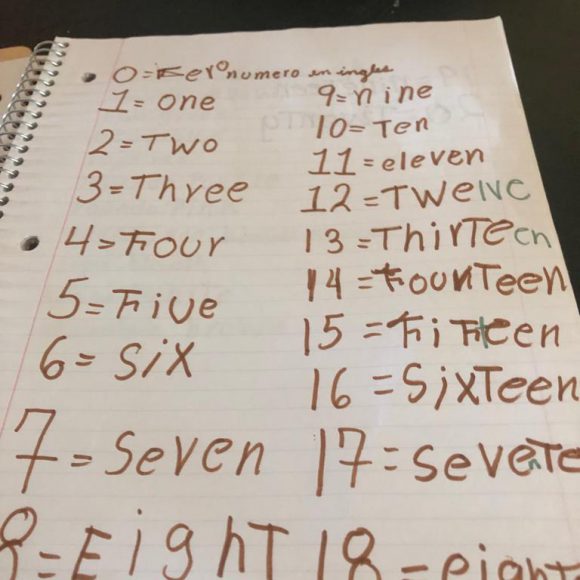 0=Zero numero en ingles
1=one
2=Two
3=Three
4=Four
5=Five
6=Six
7=Seven
8=EighT
9=nine
10=Ten
11=eleven
12=TWelNC
13=ThirTeen
14=FounTeen
15=FiFteen
16=SixTeen
17=seventTe
18=eighT